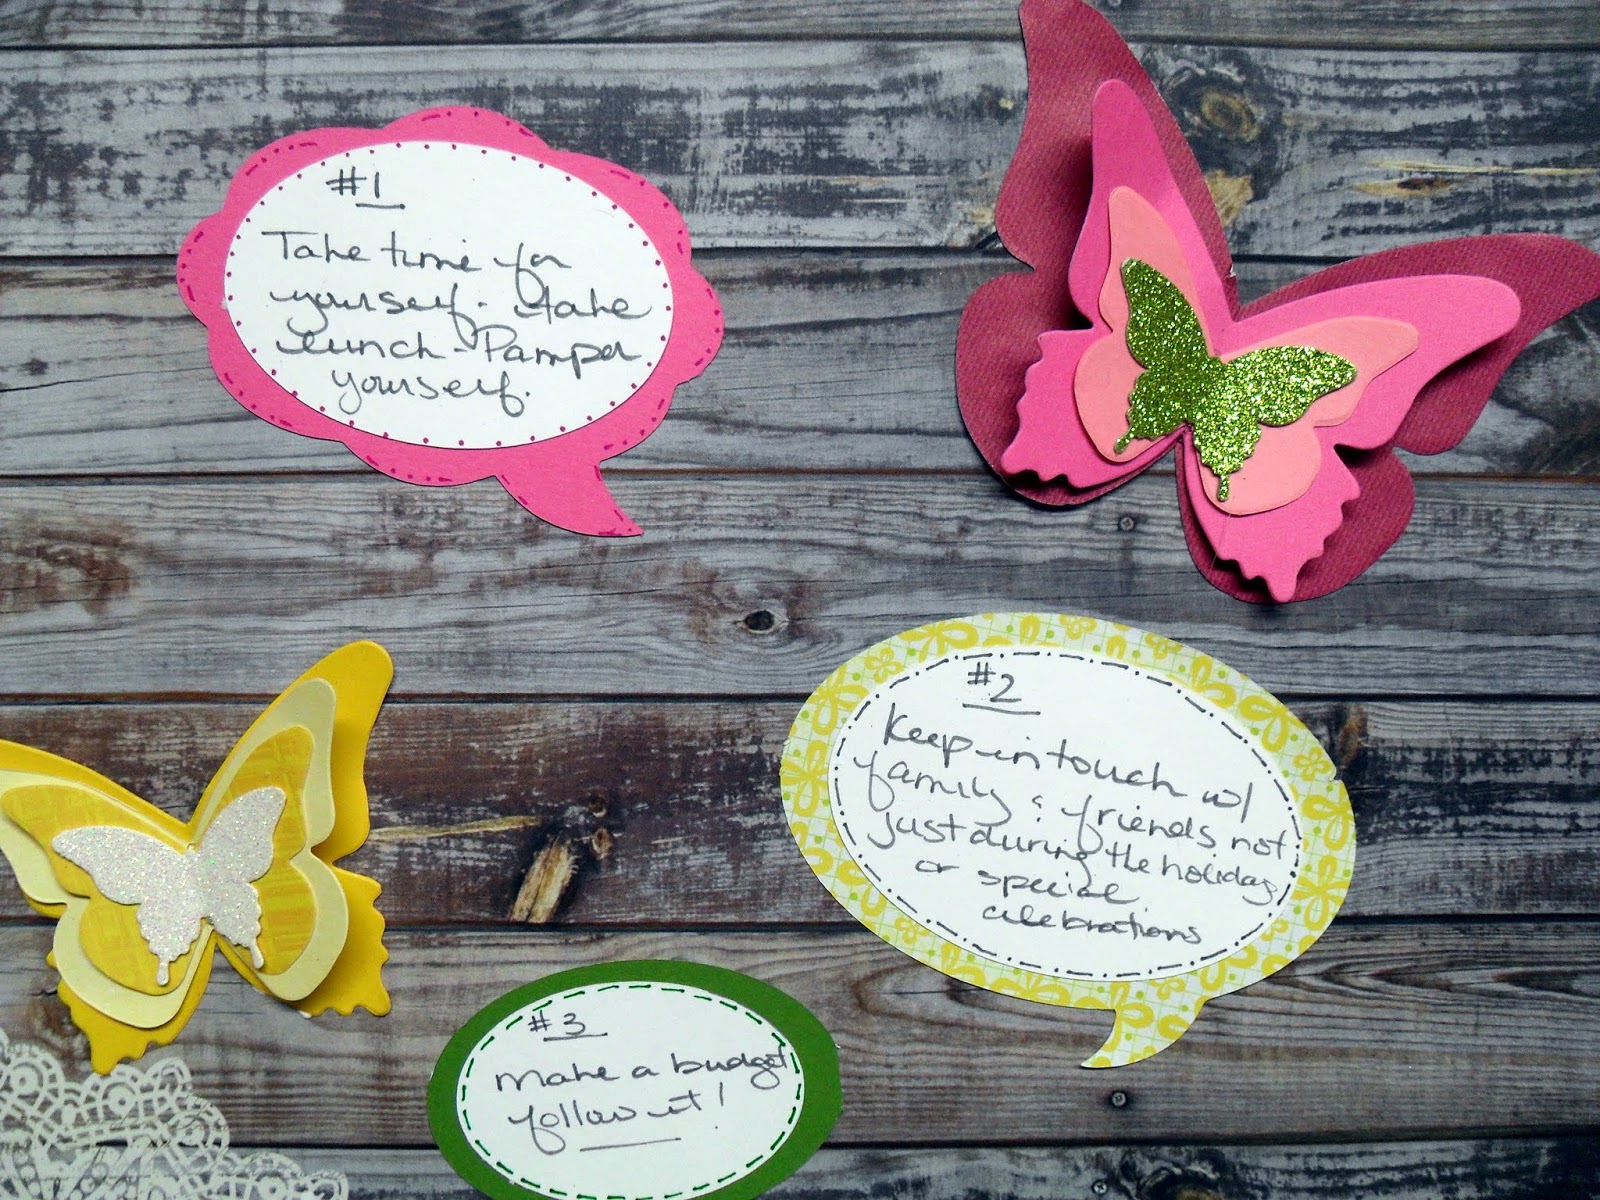 #1
Take time for
yourself. Take
lunch - Pamper
yourself.
#2
Keep in touch w/
family & friends not
just during the holidays
or special
celebrations
#3
Make a budget
follow it!